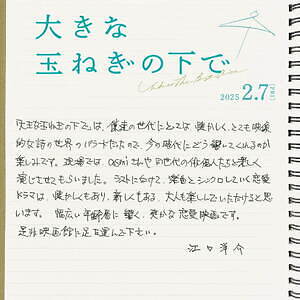 大きな
玉ねぎの下で
2025 2.7 [FRI]
「大きな玉ねぎの下で」は、僕達の世代にとっては懐かしく、とても映像
的な詩の世界のバラードなので、今の時代にどう観てくれるのか
楽しみです。現場では、の世代の俳優たちと楽しく
演じさせてもらいました。ラストに向けて、音とシンクロしていく恋愛
ドラマは、懐かしくもあり、新しくもある、大人も楽しんでいただけると思
います。幅広い年齢層に響く、爽かな恋愛映画です。
是非映画館に足を運んで下さい。
江口洋介